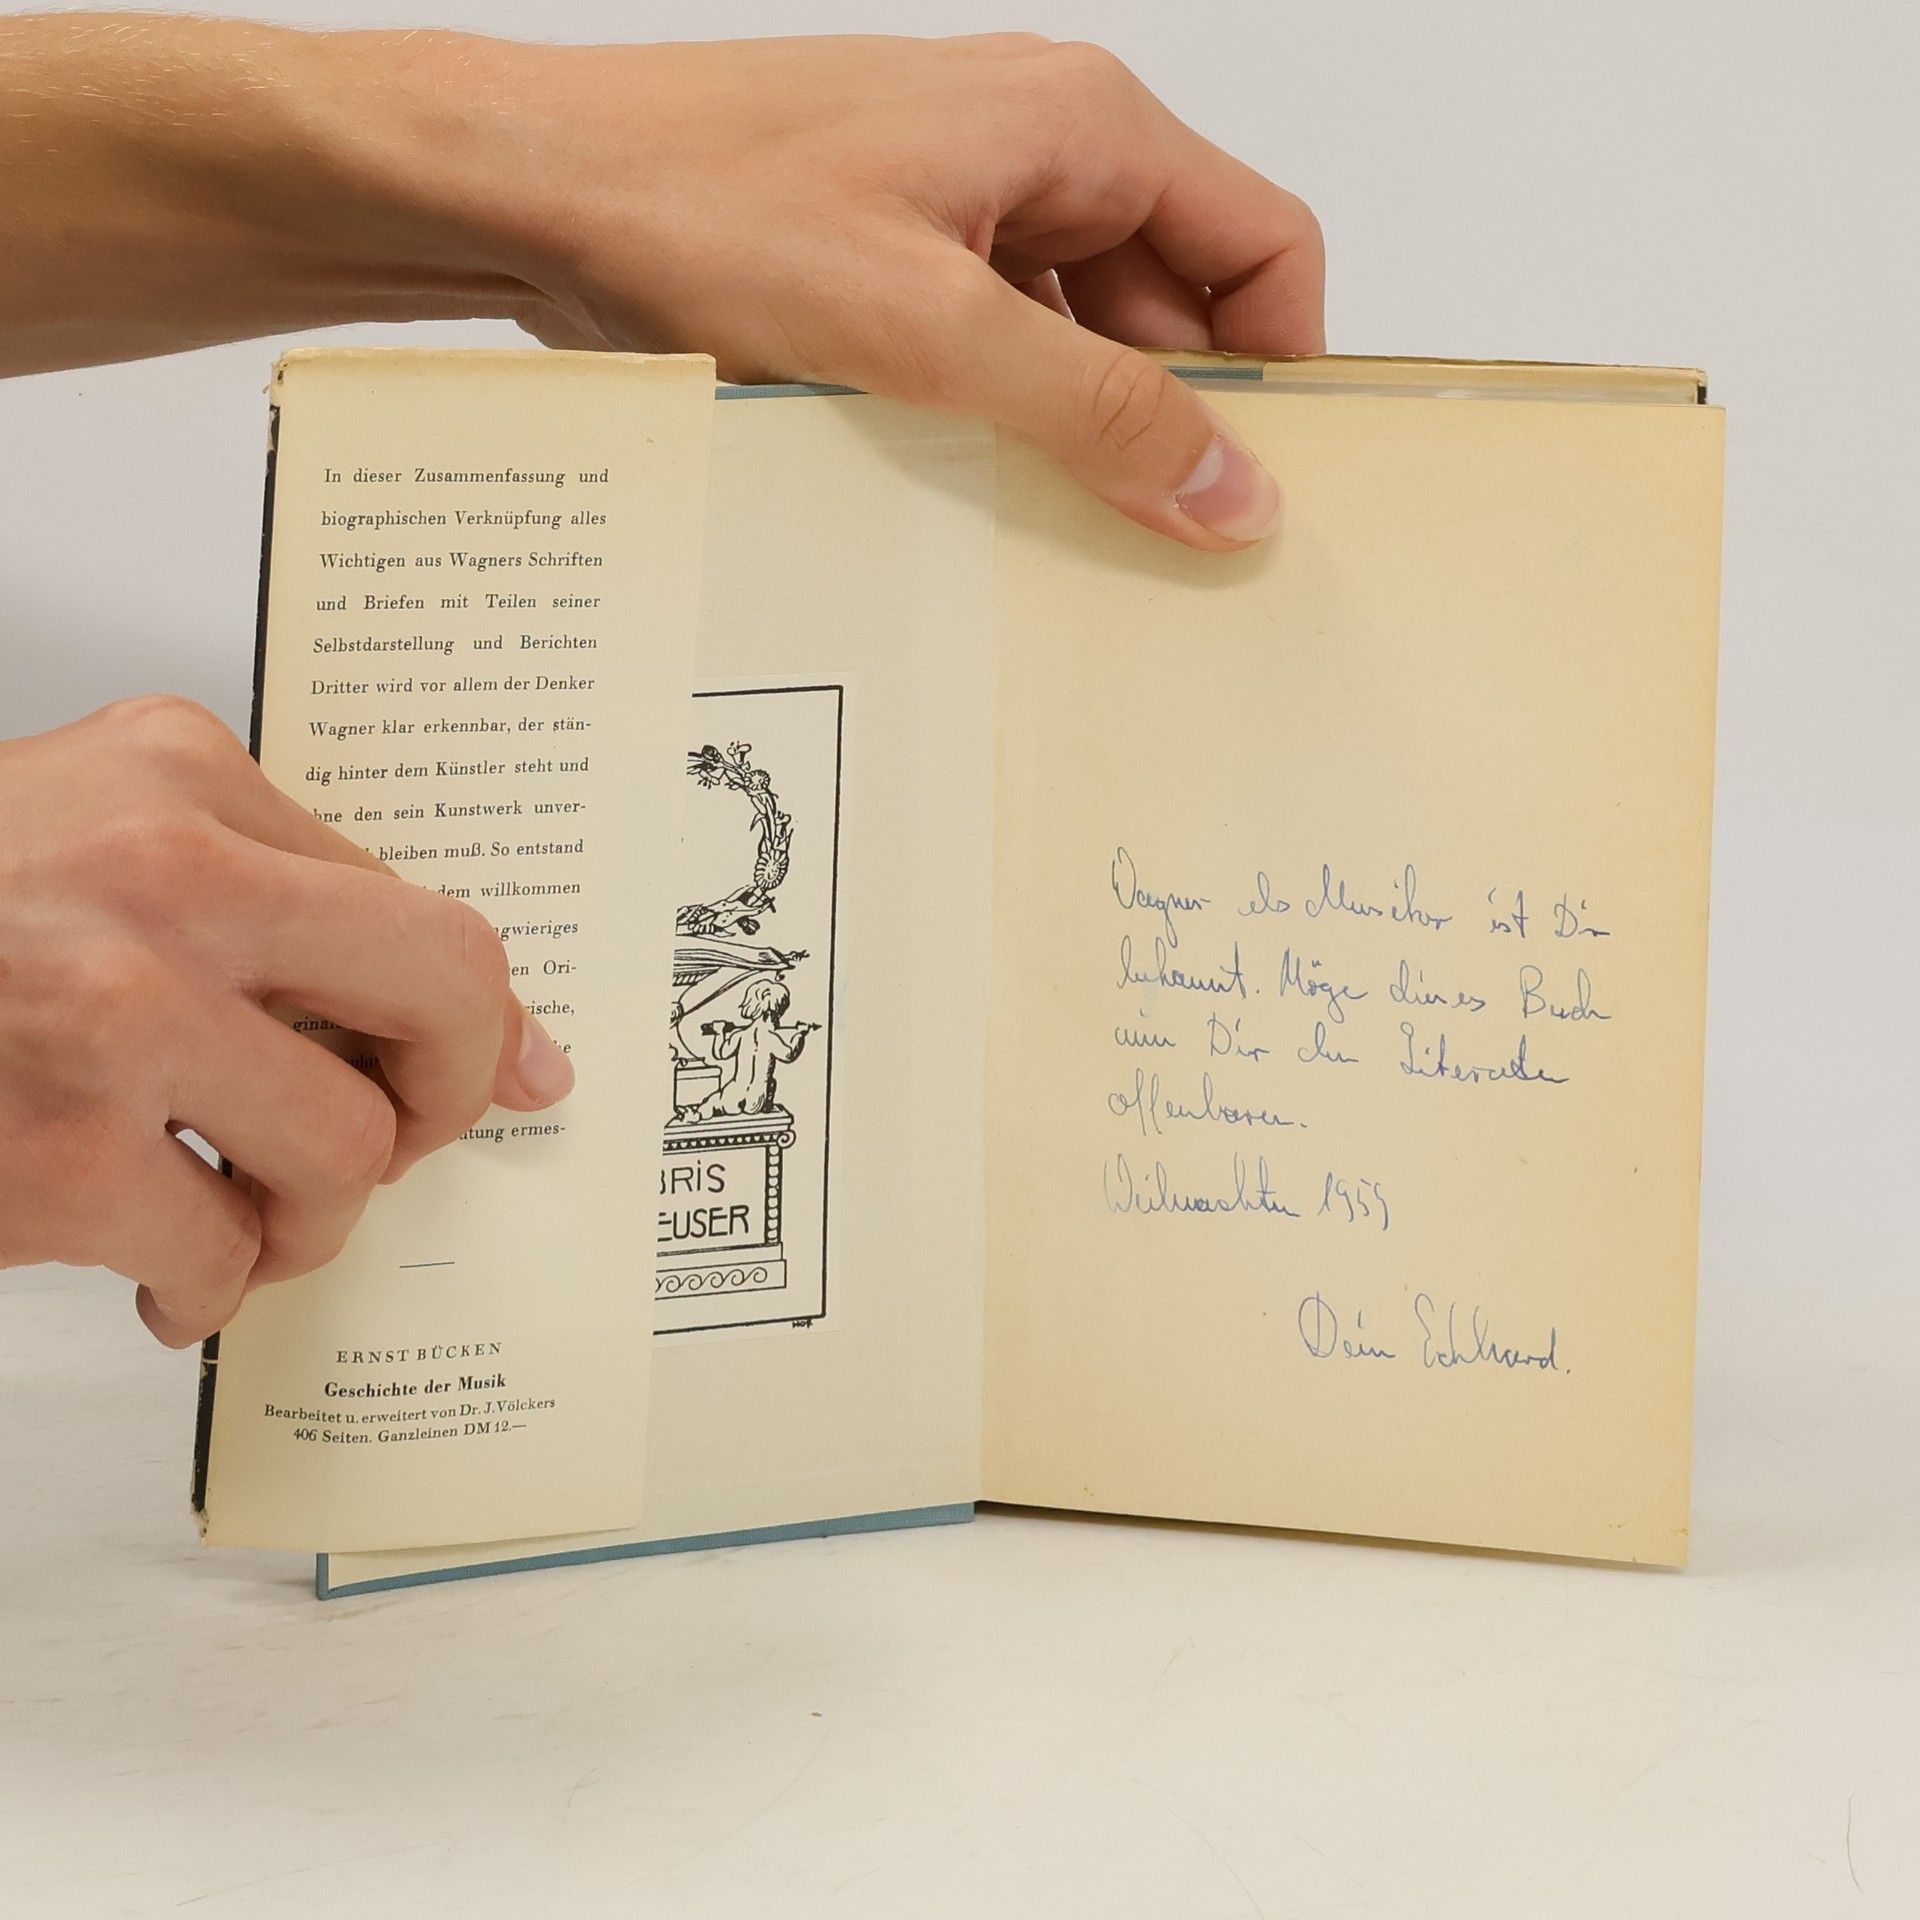 In dieser Zusammenfassung und
biographischen Verknüpfung alles
Wichtigen aus Wagners Schriften
und Briefen mit Teilen seiner
Selbstdarstellung und Berichten
Dritter wird vor allem der Denker
Wagner klar erkennbar, der stän-
dig hinter dem Künstler steht und
hne den sein Kunstwerk unver-
bleiben muß. So entstand
dem willkommen
ngwieriges
en Ori-
rische,
ginal
he
phi
utung ermes-
ERNST BÜCKEN
Geschichte der Musik
Bearbeitet u. erweitert von Dr. J. Völckers
406 Seiten. Ganzleinen DM 12.—
BRIS
EUSER
Wagner als Musiker ist Dir
bekannt. Möge dieses Buch
nun Dir den Literaten
offenbaren.
Weihnachten 1959
Dein Eckhard.